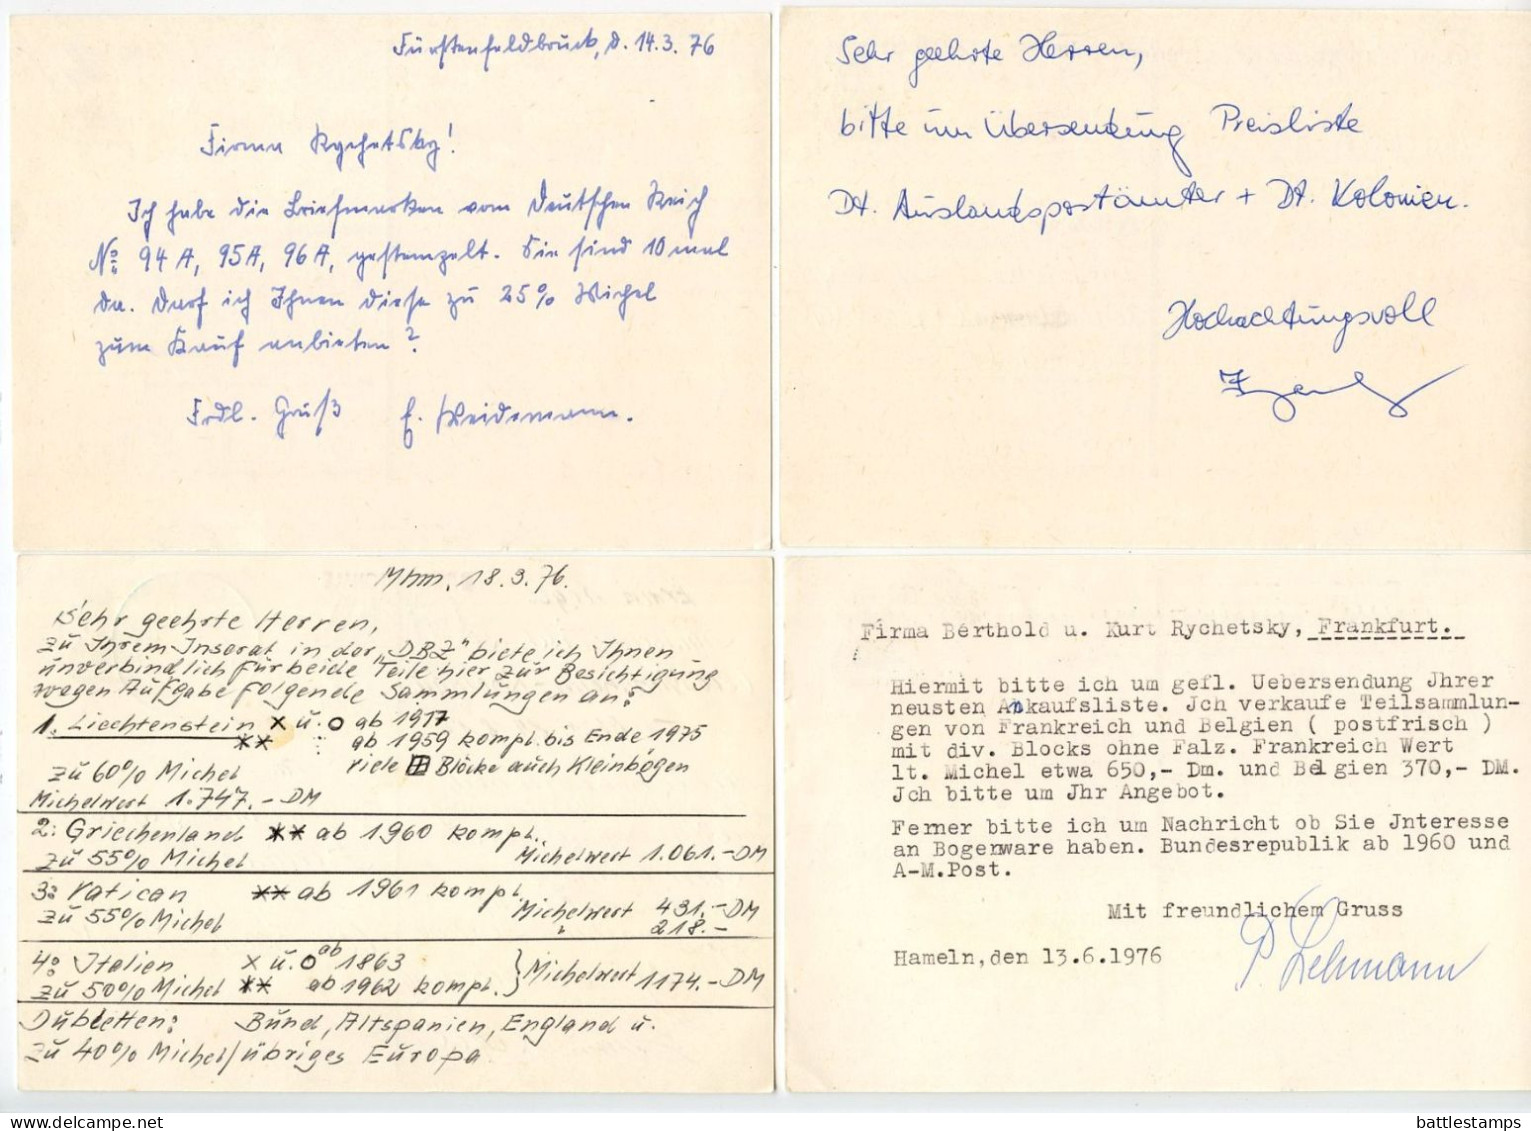 Fürstenfeldbruck, d. 14.3.76
Firma Rychetsky!
Ich habe die Briefmarken vom Deutschen Reich
No. 94 A, 95A, 96A, gestempelt. Sie sind 10 mal
da. Darf ich Ihnen diese zu 25% Michel
zum Kauf anbieten?
Frdl. Gruß E. Weidemann.
Sehr geehrte Herren,
bitte um Übersendung Preisliste
Dt. Auslandspostämter + Dt. Kolonien.
Hochachtungsvoll
Mhm. 18.3.76.
Sehr geehrte Herren,
zu Ihrem Inserat in der „DBZ" biete ich Ihnen
unverbindlich für beide Teile hier zur Besichtigung
wegen Aufgabe folgende Sammlungen an:
1. Liechtenstein x u. o ab 1917
** ab 1959 kompl. bis Ende 1975
zu 60% Michel viele ⊞ Blöcke auch Kleinbögen
Michelwert 1.747.-DM
2: Griechenland ** ab 1960 kompl.
zu 55% Michel Michelwert 1.061.-DM
3: Vatican ** ab 1961 kompl.
zu 55% Michel Michelwert 431.-DM
" 218.-
4: Italien x u. o ab 1863
zu 50% Michel ** ab 1962 kompl. } Michelwert 1174.-DM
Dubletten: Bund, Altspanien, England u.
zu 40% Michel/übriges Europa
Firma Berthold u. Kurt Rychetsky, Frankfurt.
Hiermit bitte ich um gefl. Uebersendung Jhrer
neusten Ankaufsliste. Jch verkaufe Teilsammlun-
gen von Frankreich und Belgien ( postfrisch )
mit div. Blocks ohne Falz. Frankreich Wert
lt. Michel etwa 650,- Dm. und Belgien 370,- DM.
Jch bitte um Jhr Angebot.
Ferner bitte ich um Nachricht ob Sie Jnteresse
an Bogenware haben. Bundesrepublik ab 1960 und
A-M.Post.
Mit freundlichem Gruss
Hameln,den 13.6.1976
P. Lehmann
battlestamps